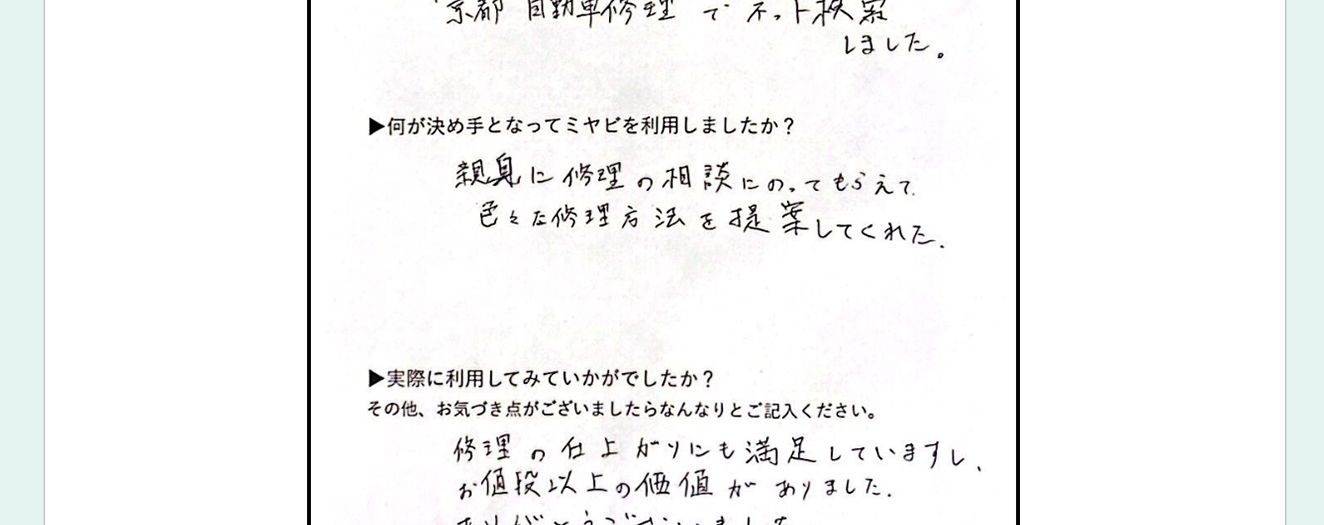 京都 自動車修理 で ネット検索
しました。
▶何が決め手となってミヤビを利用しましたか？
親身に修理の相談にのってもらえて
色々な修理方法を提案してくれた.
▶実際に利用してみていかがでしたか？
その他、お気づき点がございましたらなんなりとご記入ください。
修理の仕上がりにも満足していますし、
お値段以上の価値がありました.
ありがとうございました